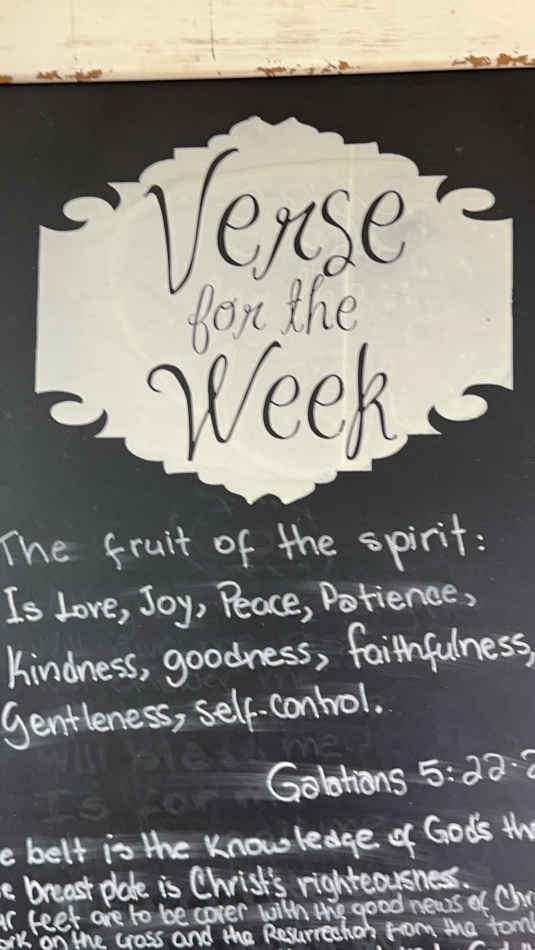 Verse
for the
Week
The fruit of the spirit:
Is Love, Joy, Peace, Patience,
Kindness, goodness, faithfulness,
Gentleness, self-control.
Galatians 5:22-2
e belt is the Knowledge of God's th
e breast plate is Christ's righteousness.
ur feet are to be cover with the good news of Chri
ork on the cross and the Resurrection from the tomb